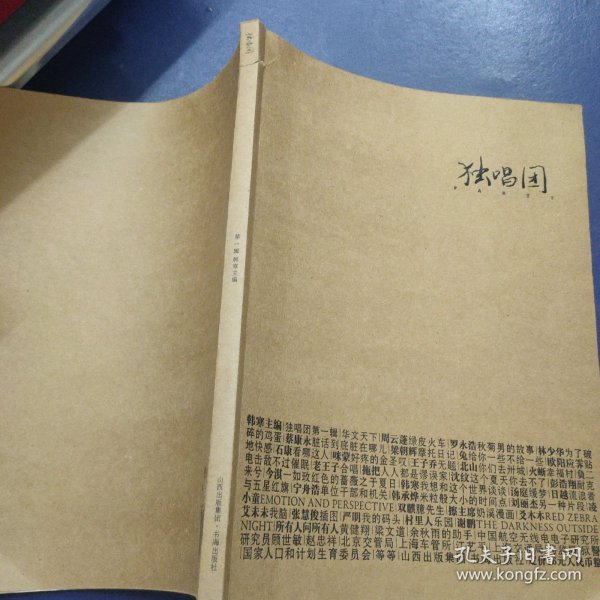 独唱团
PARTY
独唱团
第一辑 韩寒主编
山西出版集团·书海出版社
韩寒主编|独唱团第一辑|华文天下|周云蓬绿皮火车|罗永浩秋菊男的故事|林少华为了破
碎的鸡蛋|蔡康永脏话到底脏在哪儿|梁朝辉摩托日记|兔给你们一些不给一些|欧阳应霁贴
地快感|石康看哪这人|咪蒙好疼的金圣叹|王子乔无题|北山你们去卅城|火蛹幸福村|负二
电击敌不过催眠|老王子合唱|拖把人人都是谬误家|沈纹这个夏天你去不了|彭浩翔耐克
来兮|今漠一如玫红色的蔷薇之于夏日|韩寒我想和这个世界谈谈|汤庭缓梦|日越流浪者
与五星红旗|宁舟浩单位干部和机关|韩水烨米粒般大小的时间感|刘丽杰另一种片段|
小童EMOTION AND PERSPECTIVE|双麒穗先生|擦主席奶溪漫画|爻木本RED ZEBRA
艾未未我脑|张慧俊插图|严明我的码头|村里人乐园|谢鹏THE DARKNESS OUTSIDE
NIGHT|所有人问所有人|黄健翔|梁文道|余秋雨的助手|中国航空无线电电子研究所
研究员顾世敏|赵忠祥|北京交管局|上海车管所|江苏
国家人口和计划生育委员会|等等|山西出版集
孔夫子旧书网
www.kongfz.com